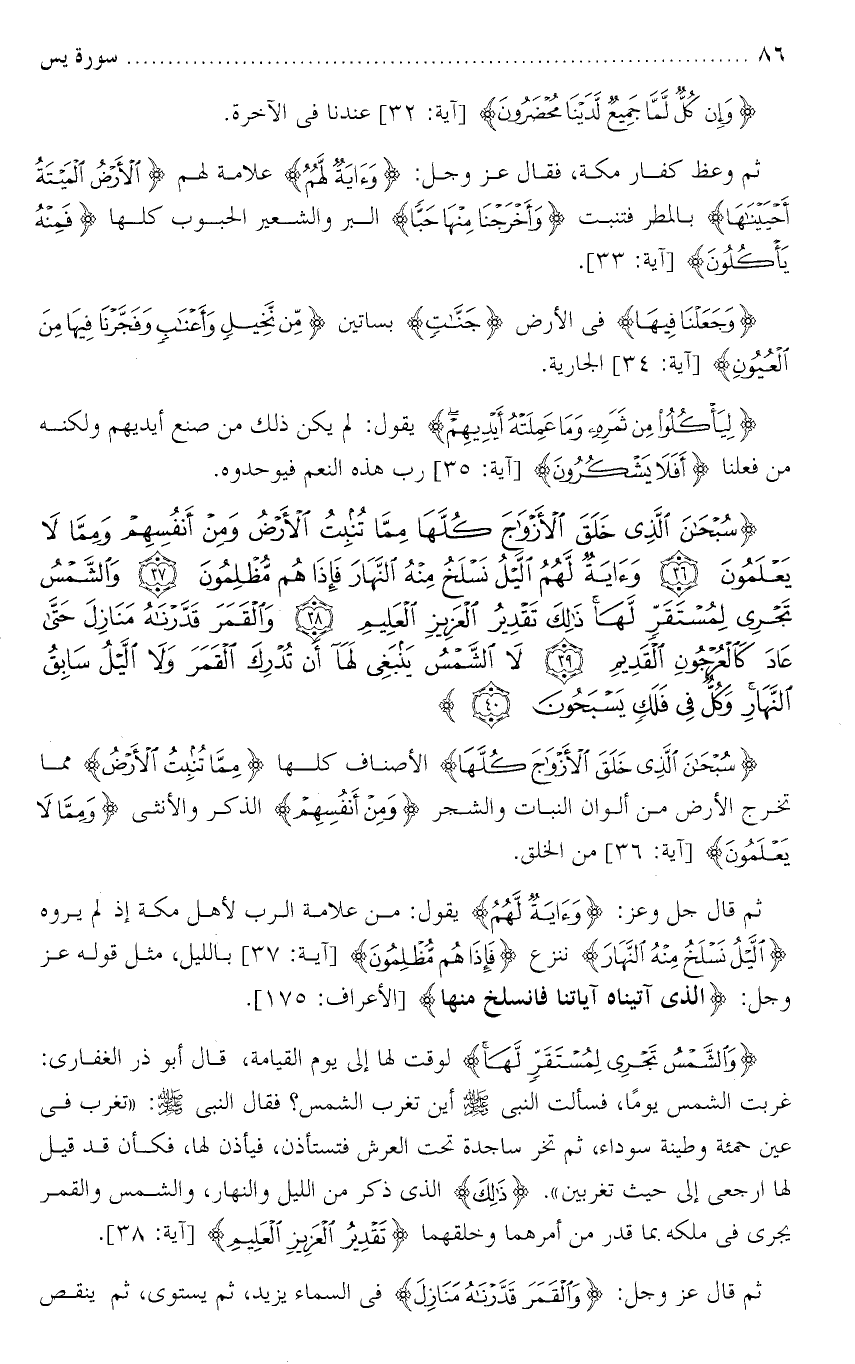 ٨٦ ........................................................................ سورة يس
﴿ وَإِن كُلٌّ لَّمَّا جَمِيعٌ لَّدَيْنَا مُحْضَرُونَ﴾ [آية: ٣٢] عندنا فى الآخرة.
ثم وعظ كفار مكة، فقال عز وجل: ﴿ وَءَايَةٌ لَّهُمُ﴾ علامة لهم ﴿ ٱلْأَرْضُ ٱلْمَيْتَةُ
أَحْيَيْنَٰهَا﴾ بالمطر فتنبت ﴿ وَأَخْرَجْنَا مِنْهَا حَبًّا﴾ البر والشعير الحبوب كلها ﴿ فَمِنْهُ
يَأْكُلُونَ﴾ [آية: ٣٣].
﴿ وَجَعَلْنَا فِيهَا﴾ فى الأرض ﴿ جَنَّٰتٍ﴾ بساتين ﴿ مِّن نَّخِيلٍ وَأَعْنَٰبٍ وَفَجَّرْنَا فِيهَا مِنَ
ٱلْعُيُونِ﴾ [آية: ٣٤] الجارية.
﴿ لِيَأْكُلُوا۟ مِن ثَمَرِهِۦ وَمَا عَمِلَتْهُ أَيْدِيهِمْ ۖ﴾ يقول: لم يكن ذلك من صنع أيديهم ولكنه
من فعلنا ﴿ أَفَلَا يَشْكُرُونَ﴾ [آية: ٣٥] رب هذه النعم فيوحدوه.
﴿ سُبْحَٰنَ ٱلَّذِى خَلَقَ ٱلْأَزْوَٰجَ كُلَّهَا مِمَّا تُنۢبِتُ ٱلْأَرْضُ وَمِنْ أَنفُسِهِمْ وَمِمَّا لَا
يَعْلَمُونَ ٣٦ وَءَايَةٌ لَّهُمُ ٱلَّيْلُ نَسْلَخُ مِنْهُ ٱلنَّهَارَ فَإِذَا هُم مُّظْلِمُونَ ٣٧ وَٱلشَّمْسُ
تَجْرِى لِمُسْتَقَرٍّ لَّهَا ۚ ذَٰلِكَ تَقْدِيرُ ٱلْعَزِيزِ ٱلْعَلِيمِ ٣٨ وَٱلْقَمَرَ قَدَّرْنَٰهُ مَنَازِلَ حَتَّىٰ
عَادَ كَٱلْعُرْجُونِ ٱلْقَدِيمِ ٣٩ لَا ٱلشَّمْسُ يَنۢبَغِى لَهَآ أَن تُدْرِكَ ٱلْقَمَرَ وَلَا ٱلَّيْلُ سَابِقُ
ٱلنَّهَارِ ۚ وَكُلٌّ فِى فَلَكٍ يَسْبَحُونَ ٤٠ ﴾
﴿ سُبْحَٰنَ ٱلَّذِى خَلَقَ ٱلْأَزْوَٰجَ كُلَّهَا﴾ الأصناف كلها ﴿ مِمَّا تُنۢبِتُ ٱلْأَرْضُ﴾ مما
تخرج الأرض من ألوان النبات والشجر ﴿ وَمِنْ أَنفُسِهِمْ﴾ الذكر والأنثى ﴿ وَمِمَّا لَا
يَعْلَمُونَ﴾ [آية: ٣٦] من الخلق.
ثم قال جل وعز: ﴿ وَءَايَةٌ لَّهُمُ﴾ يقول: من علامة الرب لأهل مكة إذ لم يروه
﴿ ٱلَّيْلُ نَسْلَخُ مِنْهُ ٱلنَّهَارَ﴾ ننزع ﴿ فَإِذَا هُم مُّظْلِمُونَ﴾ [آية: ٣٧] بالليل، مثل قوله عز
وجل: ﴿ الذى آتيناه آياتنا فانسلخ منها﴾ [الأعراف: ١٧٥].
﴿ وَٱلشَّمْسُ تَجْرِى لِمُسْتَقَرٍّ لَّهَا ۚ﴾ لوقت لها إلى يوم القيامة، قال أبو ذر الغفارى:
غربت الشمس يومًا، فسألت النبى ﷺ أين تغرب الشمس؟ فقال النبى ﷺ: «تغرب فى
عين حمئة وطينة سوداء، ثم تخر ساجدة تحت العرش فتستأذن، فيأذن لها، فكأن قد قيل
لها ارجعى إلى حيث تغربين». ﴿ ذَٰلِكَ﴾ الذى ذكر من الليل والنهار، والشمس والقمر
يجرى فى ملكه بما قدر من أمرهما وخلقهما ﴿ تَقْدِيرُ ٱلْعَزِيزِ ٱلْعَلِيمِ﴾ [آية: ٣٨].
ثم قال عز وجل: ﴿ وَٱلْقَمَرَ قَدَّرْنَٰهُ مَنَازِلَ﴾ فى السماء يزيد، ثم يستوى، ثم ينقص